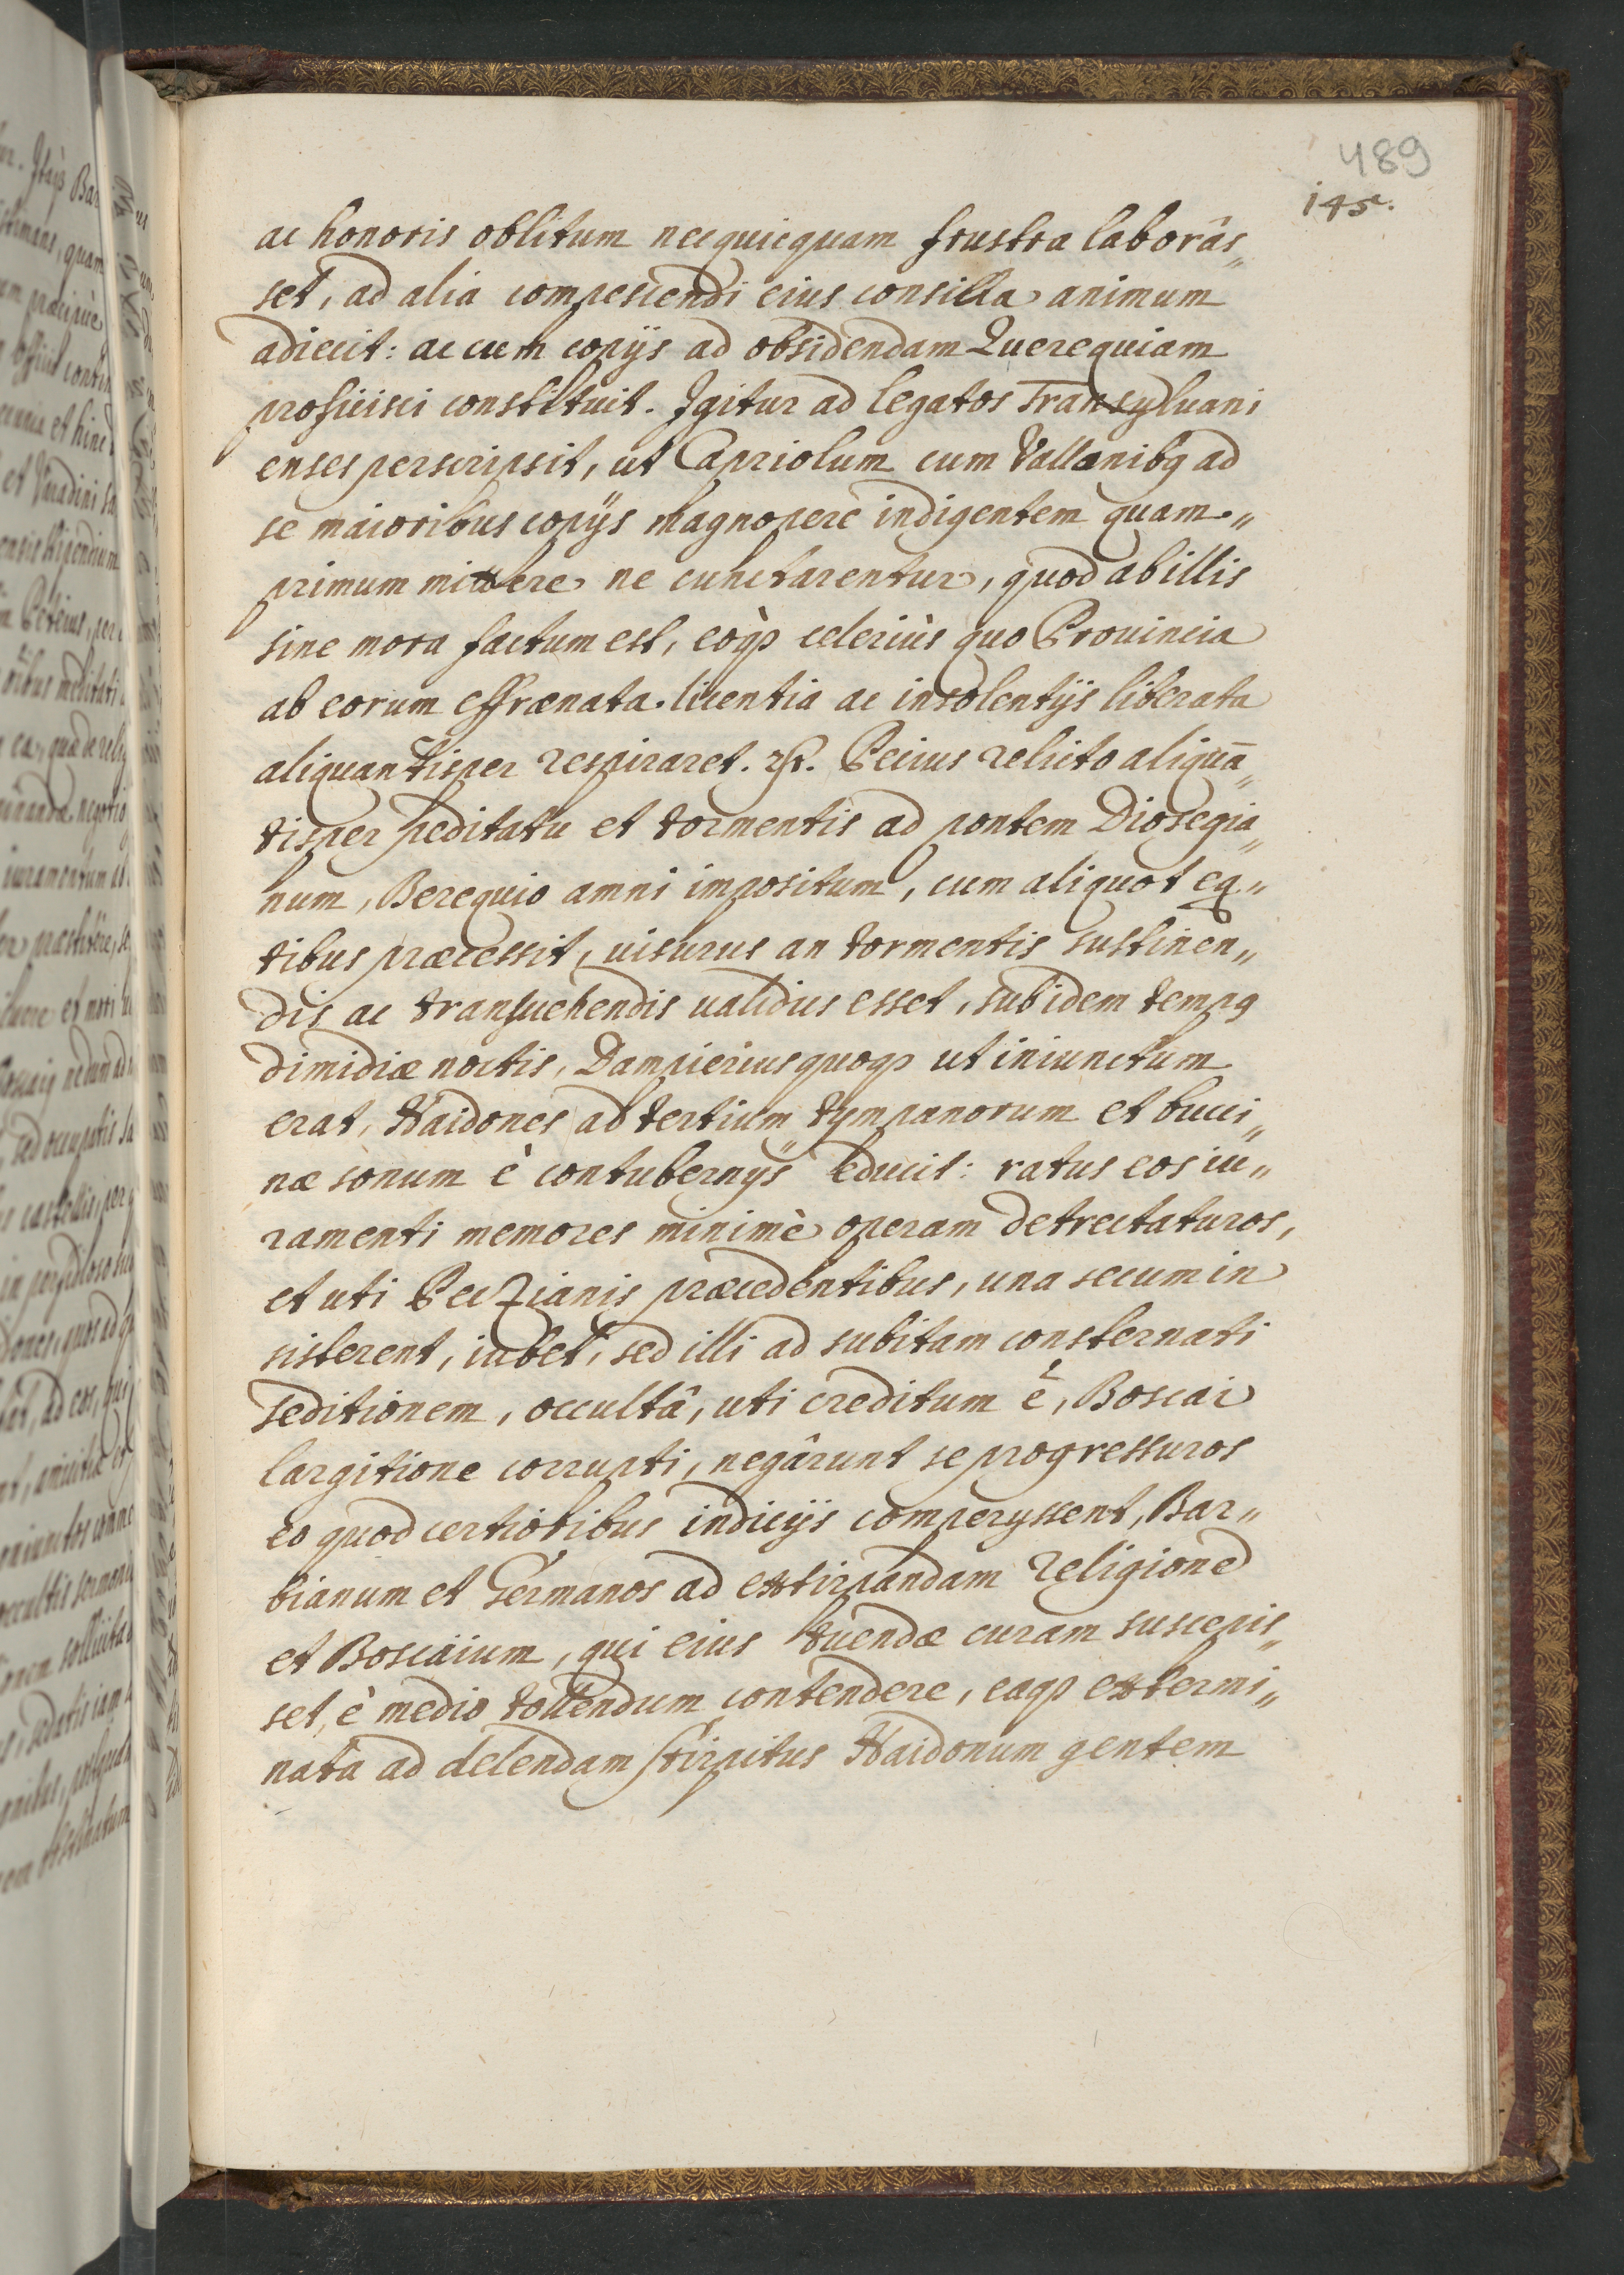 489
145.
ac honoris oblitum necquicquam frustra laborâs„
set, ad alia compescendi eius consilia animum
adiecit: ac cum copijs ad obsidendam Querequiam
proficisci constituit. Igitur ad legatos Transyluani
enses perscripsit, ut Capriolum cum Vallonibq ad
se maioribus copijs magnopere indigentem quam„
primum mittere ne cunctarentur, quod ab illis
sine mora factum est, eòqз celeriùs quo Prouincia
ab eorum effrænata licentia ac insolentijs liberata
aliquantisper respiraret. Pecius relicto aliquā„
tisper peditatu et tormentis ad pontem Diosegia„
num, Berequio amni impositum, cum aliquot eq„
tibus præcessit, uisurus an tormentis sustinen„
dis ac transuehendis ualidius esset, sub idem tempq
dimidiæ noctis, Dampieriusquoqз ut iniunctum
erat, Haidones ad tertium tympanorum et bucci„
næ sonum è contubernijs educit: ratus eos iu„
ramenti memores minimè operam detrectaturos,
et uti Peczianis præcedentibus, una secum in
sisterent, iubet, sed illi ad subitam consternati
seditionem, occultâ, uti creditum ē, Boscai
largitione corrupti, negârunt se progressuros
eo quod certioribus indicijs comperyssent, Bar„
bianum et Germanos ad extirpandam religionē
et Boscaium, qui eius tuendæ curam suscepis„
set, è medio tollendum contendere, eaqз extermi„
nata ad delendam stirpitus Haidonum gentem